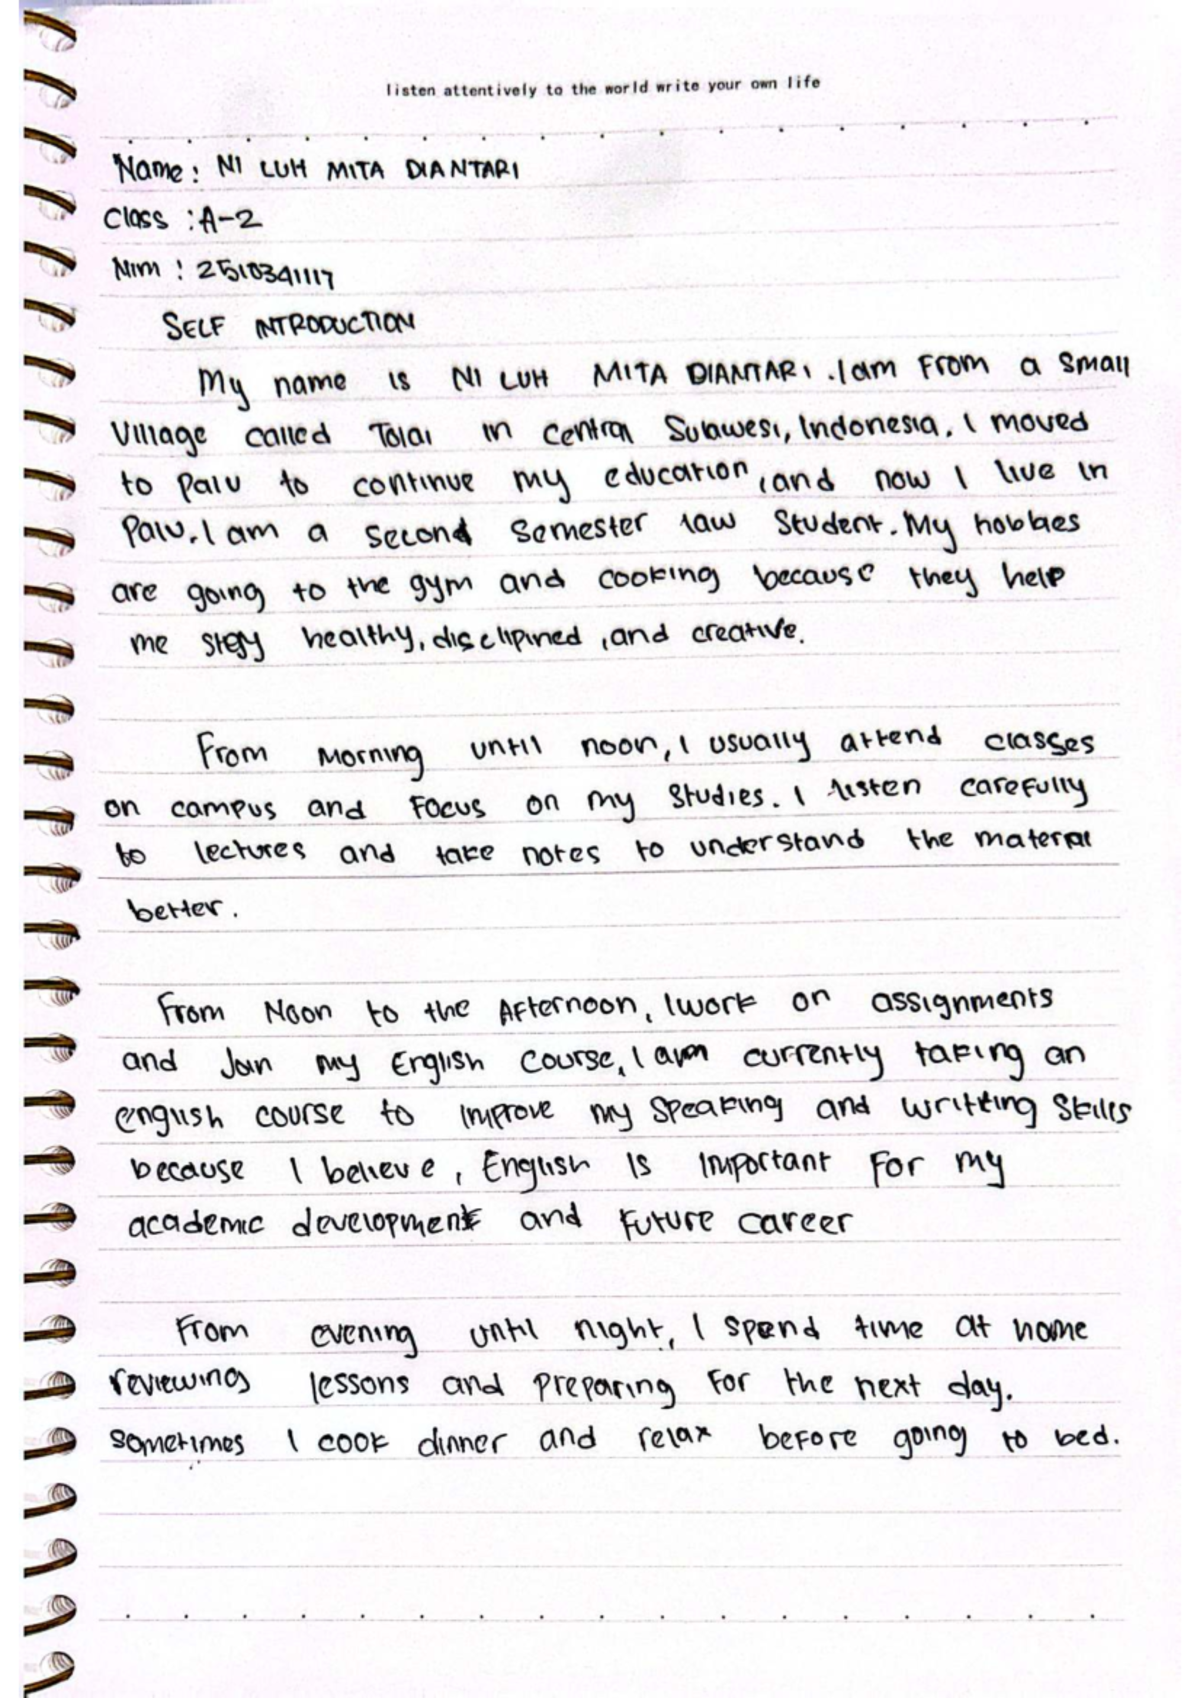 listen attentively to the world write your own life
Name : NI LUH MITA DIANTARI
Class : A-2
Nim : 2510341117
SELF INTRODUCTION
My name is NI LUH MITA DIANTARI. I am From a Small
Village called Tolai in Central Sulawesi, Indonesia. I moved
to Palu to continue my education, and now I live in
Palu. I am a second Semester law Student. My hobbies
are going to the gym and cooking because they help
me stay healthy, disclipined, and creative.
From Morning until noon, I usually attend classes
on campus and Focus on my Studies. I listen carefully
to lectures and take notes to understand the material
better.
From Noon to the Afternoon, I work on assignments
and Join my English Course, I am currently taking an
english course to improve my Speaking and writting Skills
because I believe, English is important For my
academic development and Future career
From evening until night, I spend time at home
reviewing lessons and preparing For the next day.
sometimes I cook dinner and relax before going to bed.